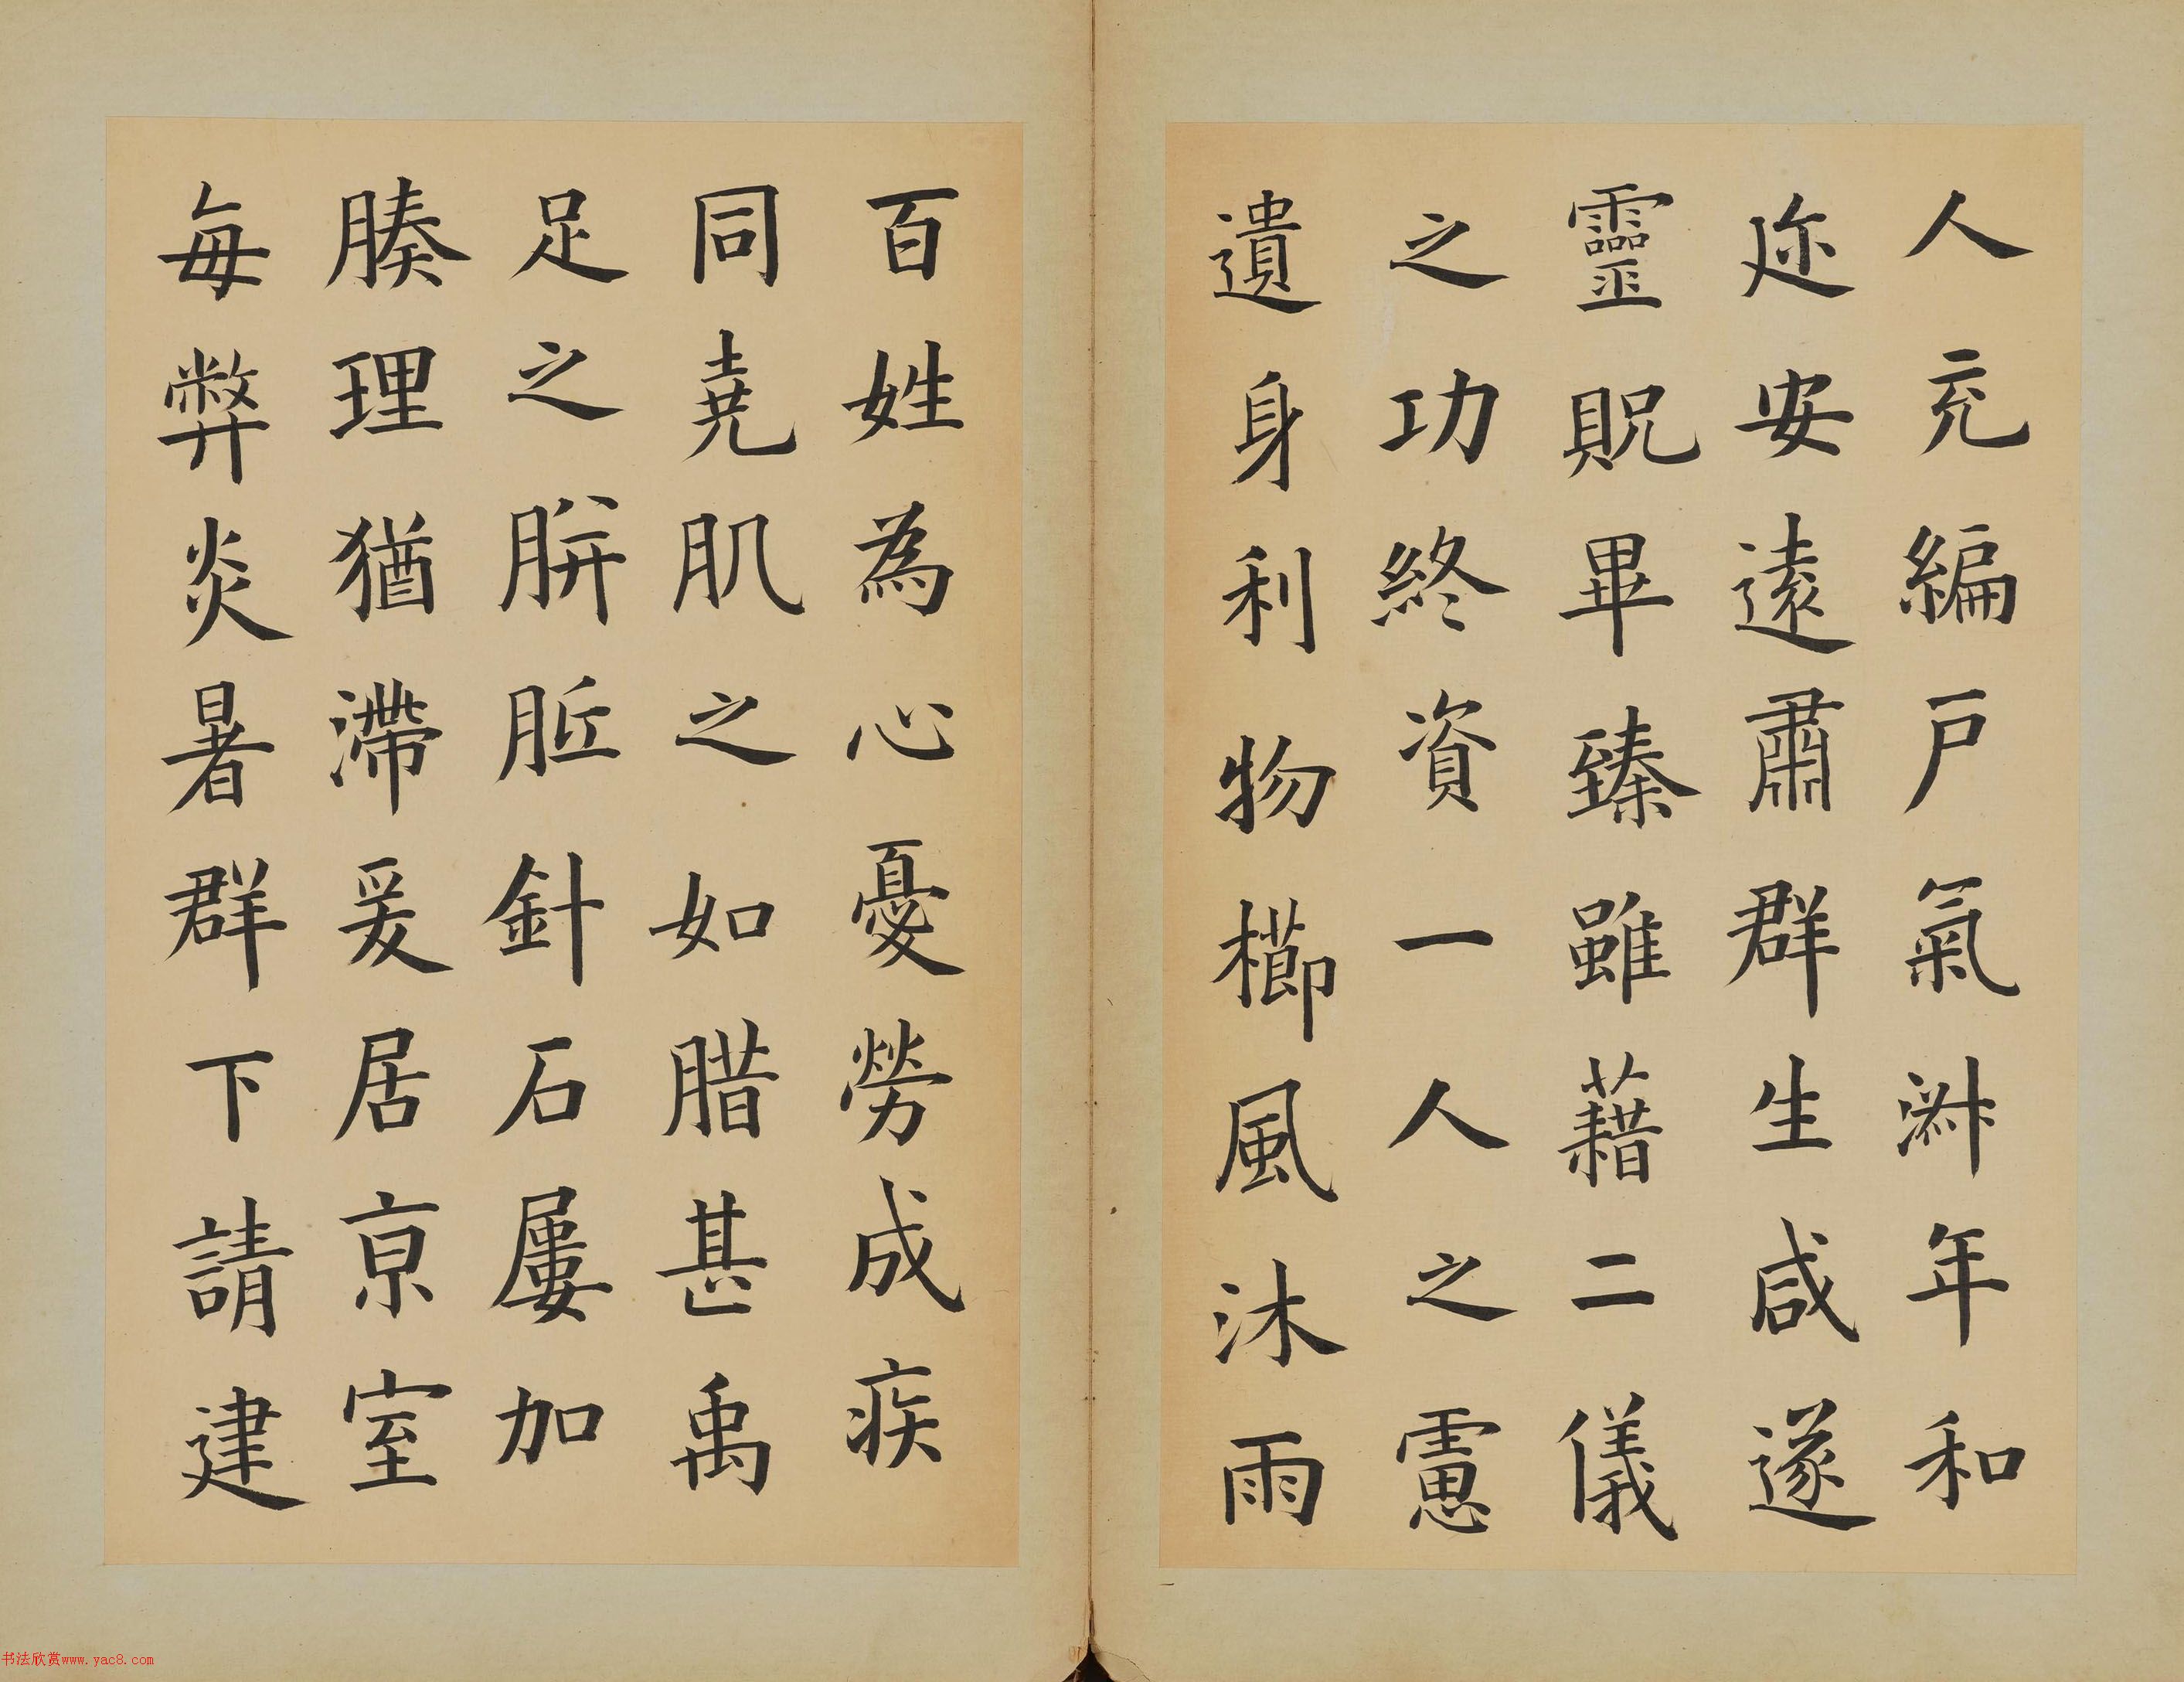 人充編戸氣淋年和
迩安遠肅群生咸遂
靈貺畢臻雖藉二儀
之功終資一人之慮
遺身利物櫛風沐雨
百姓為心憂勞成疾
同堯肌之如腊甚禹
足之胼胝針石屢加
腠理猶滯爰居京室
每弊炎暑群下請建
书法欣赏www.yac8.com